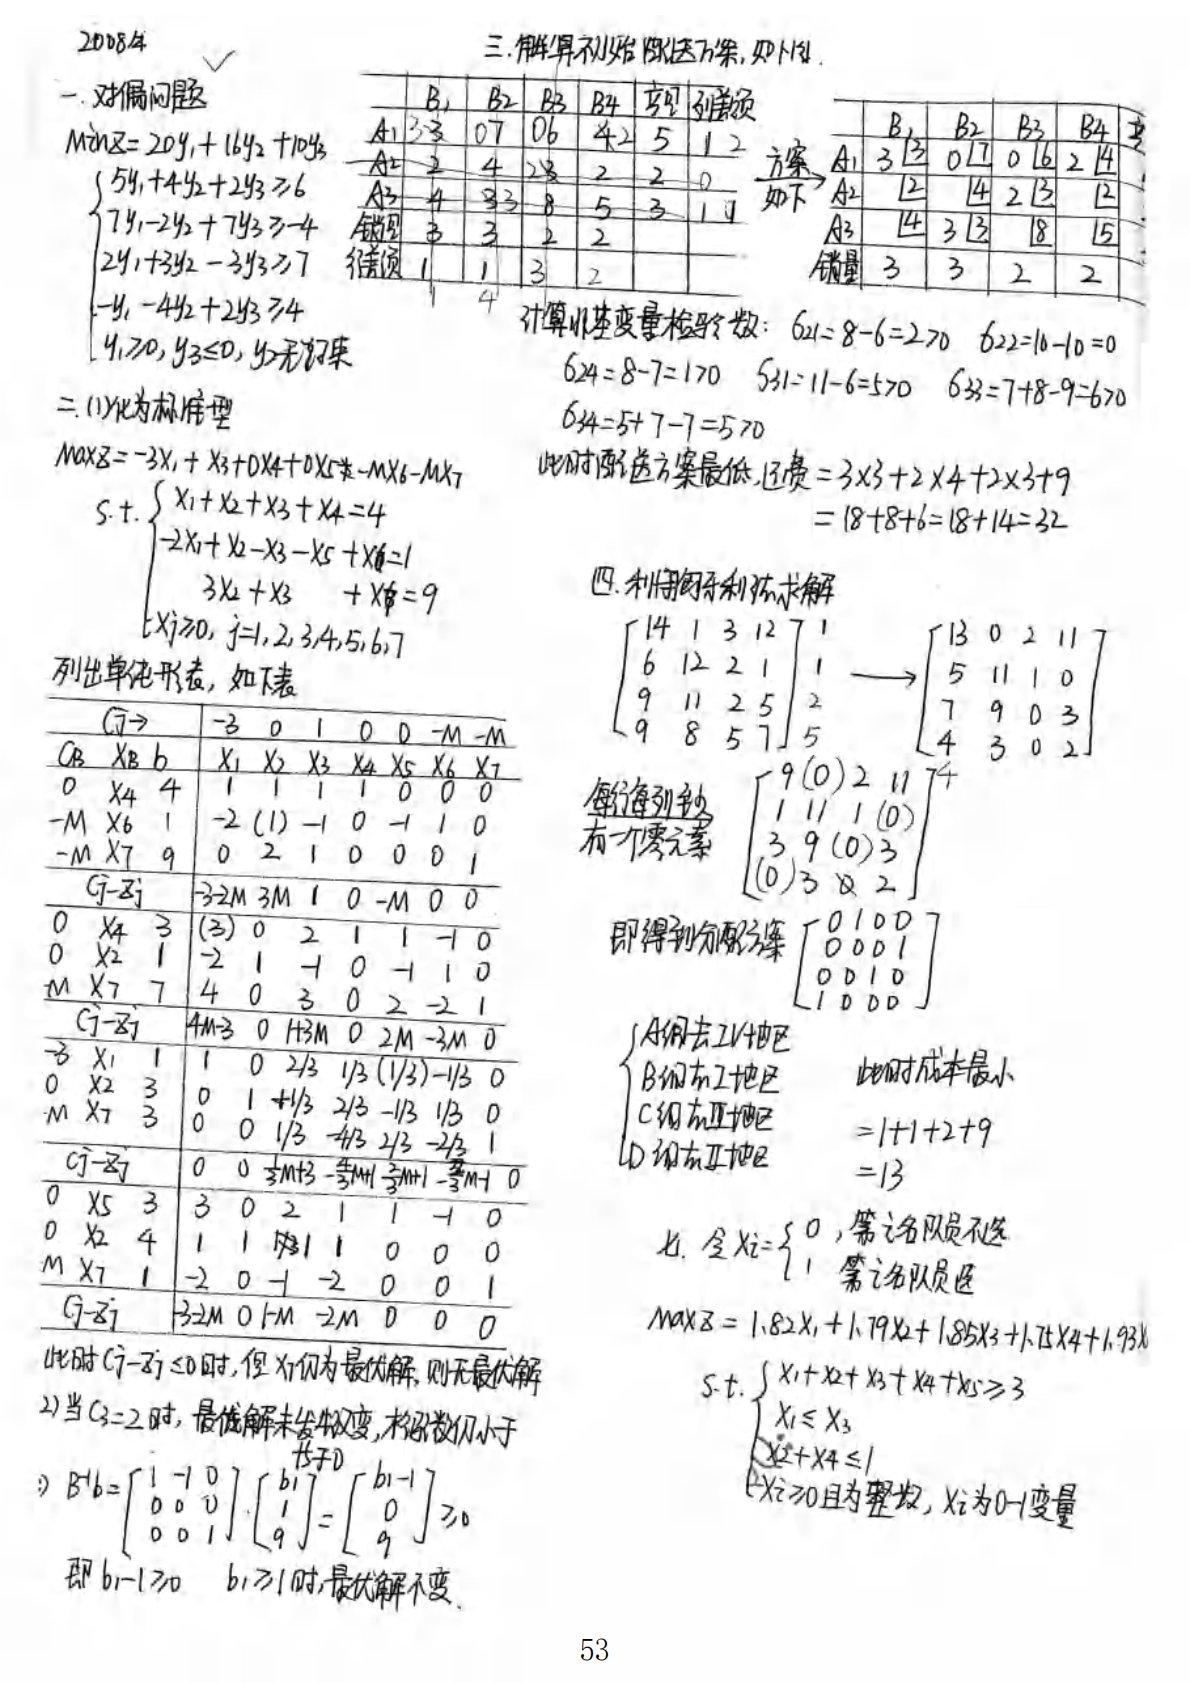 2008年
一.对偶问题
MinZ=20y₁+16y₂+10y₃
5y₁+4y₂+2y₃≥6
7y₁-2y₂+7y₃≥-4
2y₁+3y₂-3y₃≥7
-y₁-4y₂+2y₃≥4
y₁≥0, y₃≤0, y₂无约束
二.(1)化为标准型
MaxZ=-3x₁+x₃+0x₄+0x₅-Mx₆-Mx₇
s.t. x₁+x₂+x₃+x₄=4
-2x₁+x₂-x₃-x₅+x₆=1
3x₂+x₃ +x₇=9
xj≥0, j=1,2,3,4,5,6,7
列出单纯形表, 如下表
Cj→ -3 0 1 0 0 -M -M
CB XB b X₁ X₂ X₃ X₄ X₅ X₆ X₇
0 X₄ 4 1 1 1 1 0 0 0
-M X₆ 1 -2 (1) -1 0 -1 1 0
-M X₇ 9 0 2 1 0 0 0 1
Cj-Zj -3-2M 3M 1 0 -M 0 0
0 X₄ 3 (3) 0 2 1 1 -1 0
0 X₂ 1 -2 1 -1 0 -1 1 0
-M X₇ 7 4 0 3 0 2 -2 1
Cj-Zj 4M-3 0 1+3M 0 2M -3M 0
-3 X₁ 1 1 0 2/3 1/3 (1/3) -1/3 0
0 X₂ 3 0 1 +1/3 2/3 -1/3 1/3 0
-M X₇ 3 0 0 1/3 -4/3 2/3 -2/3 1
Cj-Zj 0 0 1/3M+3 -4/3M+1 2/3M+1 M-1 0
0 X₅ 3 3 0 2 1 1 -1 0
0 X₂ 4 1 1 1 1 0 0 0
M X₇ 1 -2 0 -1 -2 0 0 1
Cj-Zj -3-2M 0 1-M -2M 0 0 0
此时Cj-Zj≤0时, 但X₇仍为最优解, 则无最优解
2)当C₃=2时, 最优解未发生改变, 检验数仍小于
等于0
B⁻¹b= [1 -1 0 · [b₁ = [b₁-1
0 0 0 1 0 ≥0
0 0 1] 9] 9]
即b₁-1≥0 b₁≥1时, 最优解不变.
三.解算初始配送方案, 如下图.
B₁ B₂ B₃ B₄ 产量 列差额
A₁ 3 3 0 7 0 6 4 2 5 1 2
A₂ 2 4 2 3 2 2 0
A₃ 4 3 3 8 5 3 1 1
销量 3 3 2 2
行差额 1 1 3 2
1 4
方案
如下
B₁ B₂ B₃ B₄
A₁ 3 3 0 7 0 6 2 4
A₂ 2 4 2 3 2
A₃ 4 3 3 8 5
销量 3 3 2 2
计算非基变量检验数: б₂₁=8-6=2>0 б₂₂=10-10=0
б₂₄=8-7=1>0 б₃₁=11-6=5>0 б₃₃=7+8-9=6>0
б₃₄=5+7-7=5>0
此时配送方案最低, 运费=3×3+2×4+2×3+9
=18+8+6=18+14=32
四.利用匈牙利法求解
14 1 3 12 1 13 0 2 11
6 12 2 1 1 → 5 11 1 0
9 11 2 5 2 7 9 0 3
9 8 5 7 5 4 3 0 2
每行每列至少
有一个零元素
9 (0) 2 11 4
1 11 1 (0)
3 9 (0) 3
(0) 3 0 2
即得到分配方案
0 1 0 0
0 0 0 1
0 0 1 0
1 0 0 0
A组去IV地区
B组去I地区
C组去III地区
D组去II地区
此时成本最小
=1+1+2+9
=13
七.令Xi= 0, 第i名队员不选
1 第i名队员选
MaxZ=1.82X₁+1.79X₂+1.85X₃+1.75X₄+1.93X
s.t. X₁+X₂+X₃+X₄+X₅≥3
X₁≤X₃
X₂+X₄≤1
Xi≥0且为整数, Xi为0-1变量
53